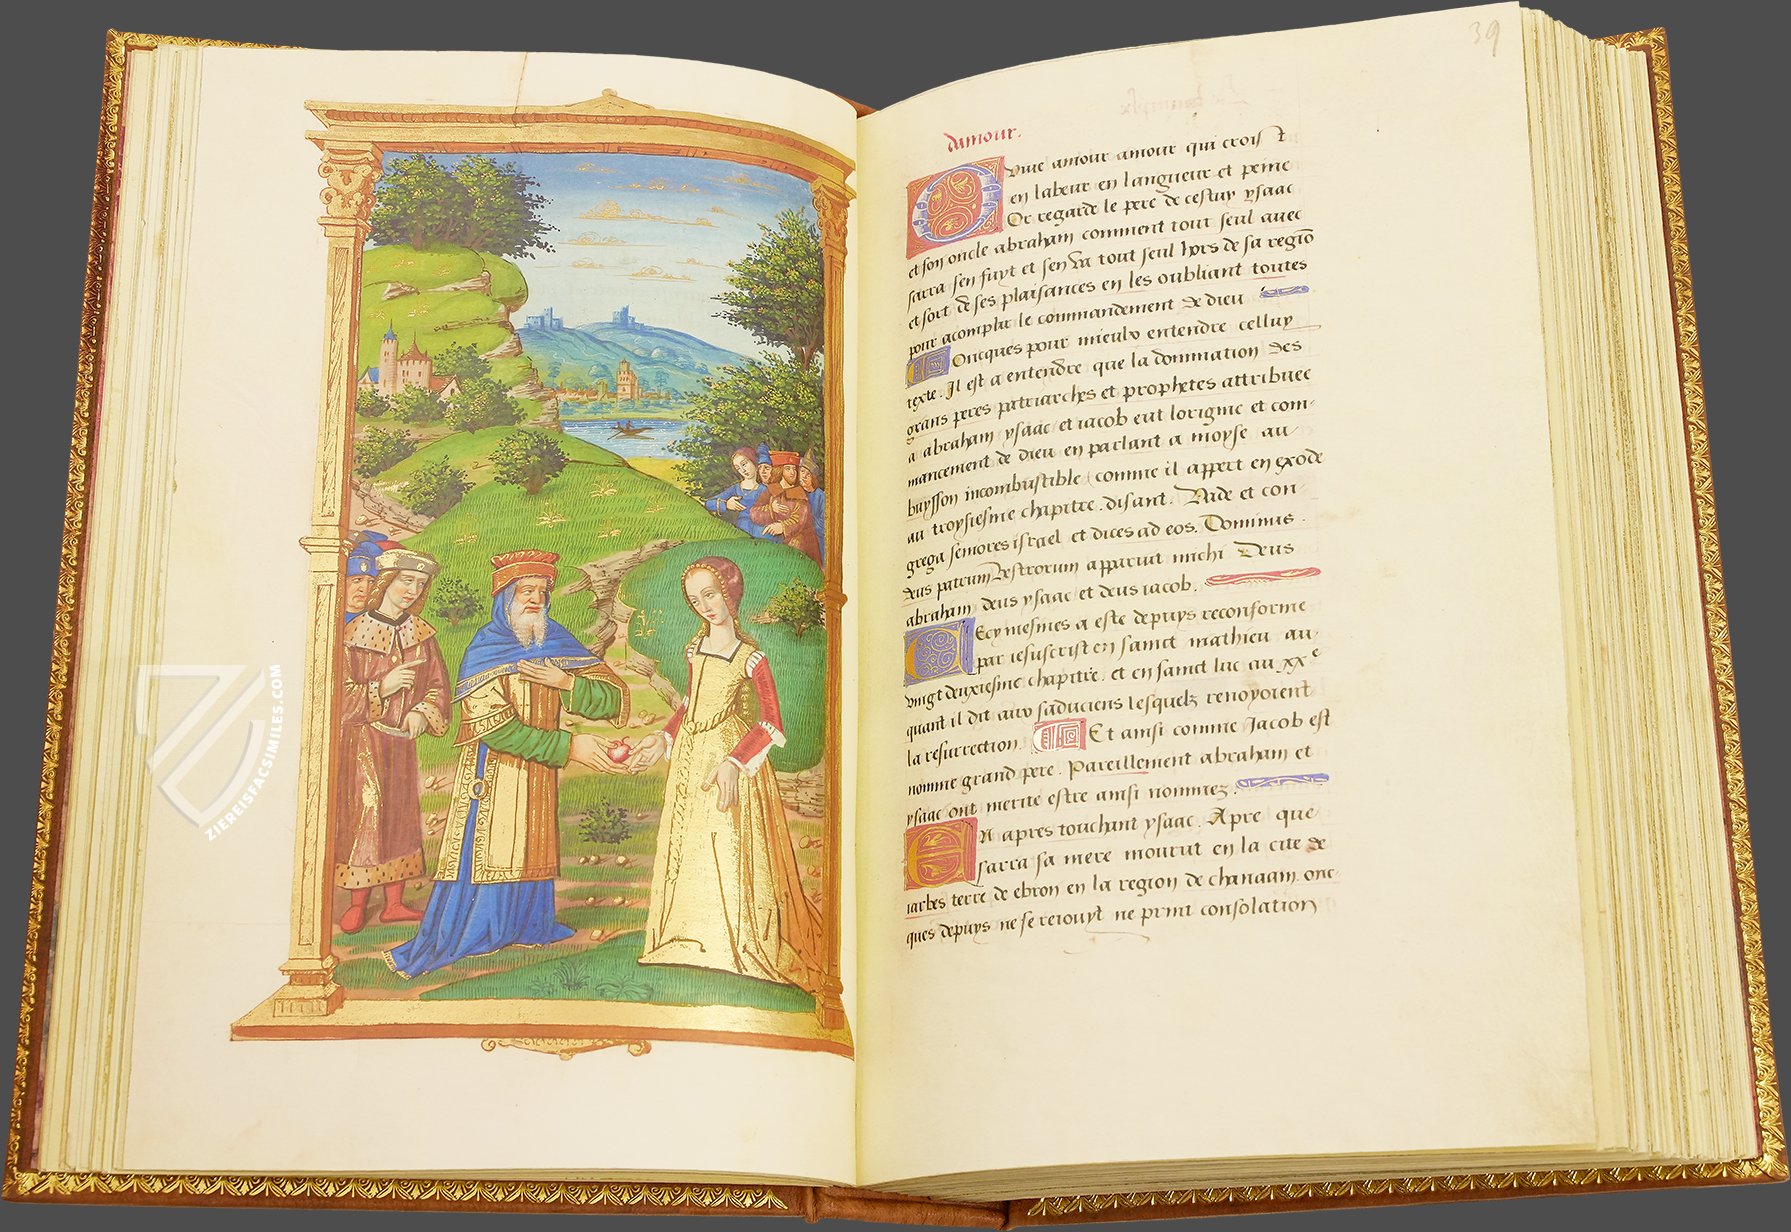 ZIEREISFACSIMILES.COM
39
damour.
Ovue amour amour qui crois
en labeur en langueur et peine
Or regarde le pere de cestuy ysaac
et son oncle abraham comment tout seul avec
sarra sen fuyt et sen va tout seul hors de sa regiō
et sort de ses plaisances en les oubliant toutes
pour acomplir le commandement de dieu
Doncques pour mieulx entendre celluy
texte. Il est a entendre que la domination des
grans peres patriarches et prophetes attribuee
a abraham ysaac et iacob eut lorigine et com-
mancement de dieu en parlant a moyse au
buysson incombustible comme il appert en exode
au troysiesme chapitre. disant. Vade et con-
grega seniores israel et dices ad eos. Dominus.
deus patrum vestrorum apparuit michi Deus
abraham deus ysaac et deus iacob.
Cecy mesmes a este depuys reconforme
par iesuscrist en sainct mathieu au
vingt deuxiesme chapitre. et en sainct luc au xx e
quant il dit aux saduciens lesquelz renoyoient
la resurrection. Et ainsi comme Jacob est
nomme grand pere. Pareillement abraham et
ysaac ont merite estre ainsi nommez.
En apres touchant ysaac. Apre que
sarra sa mere mourut en la cite de
iarbes terre de ebron en la region de chanaam onc-
ques depuys ne se resiouyt ne print consolation